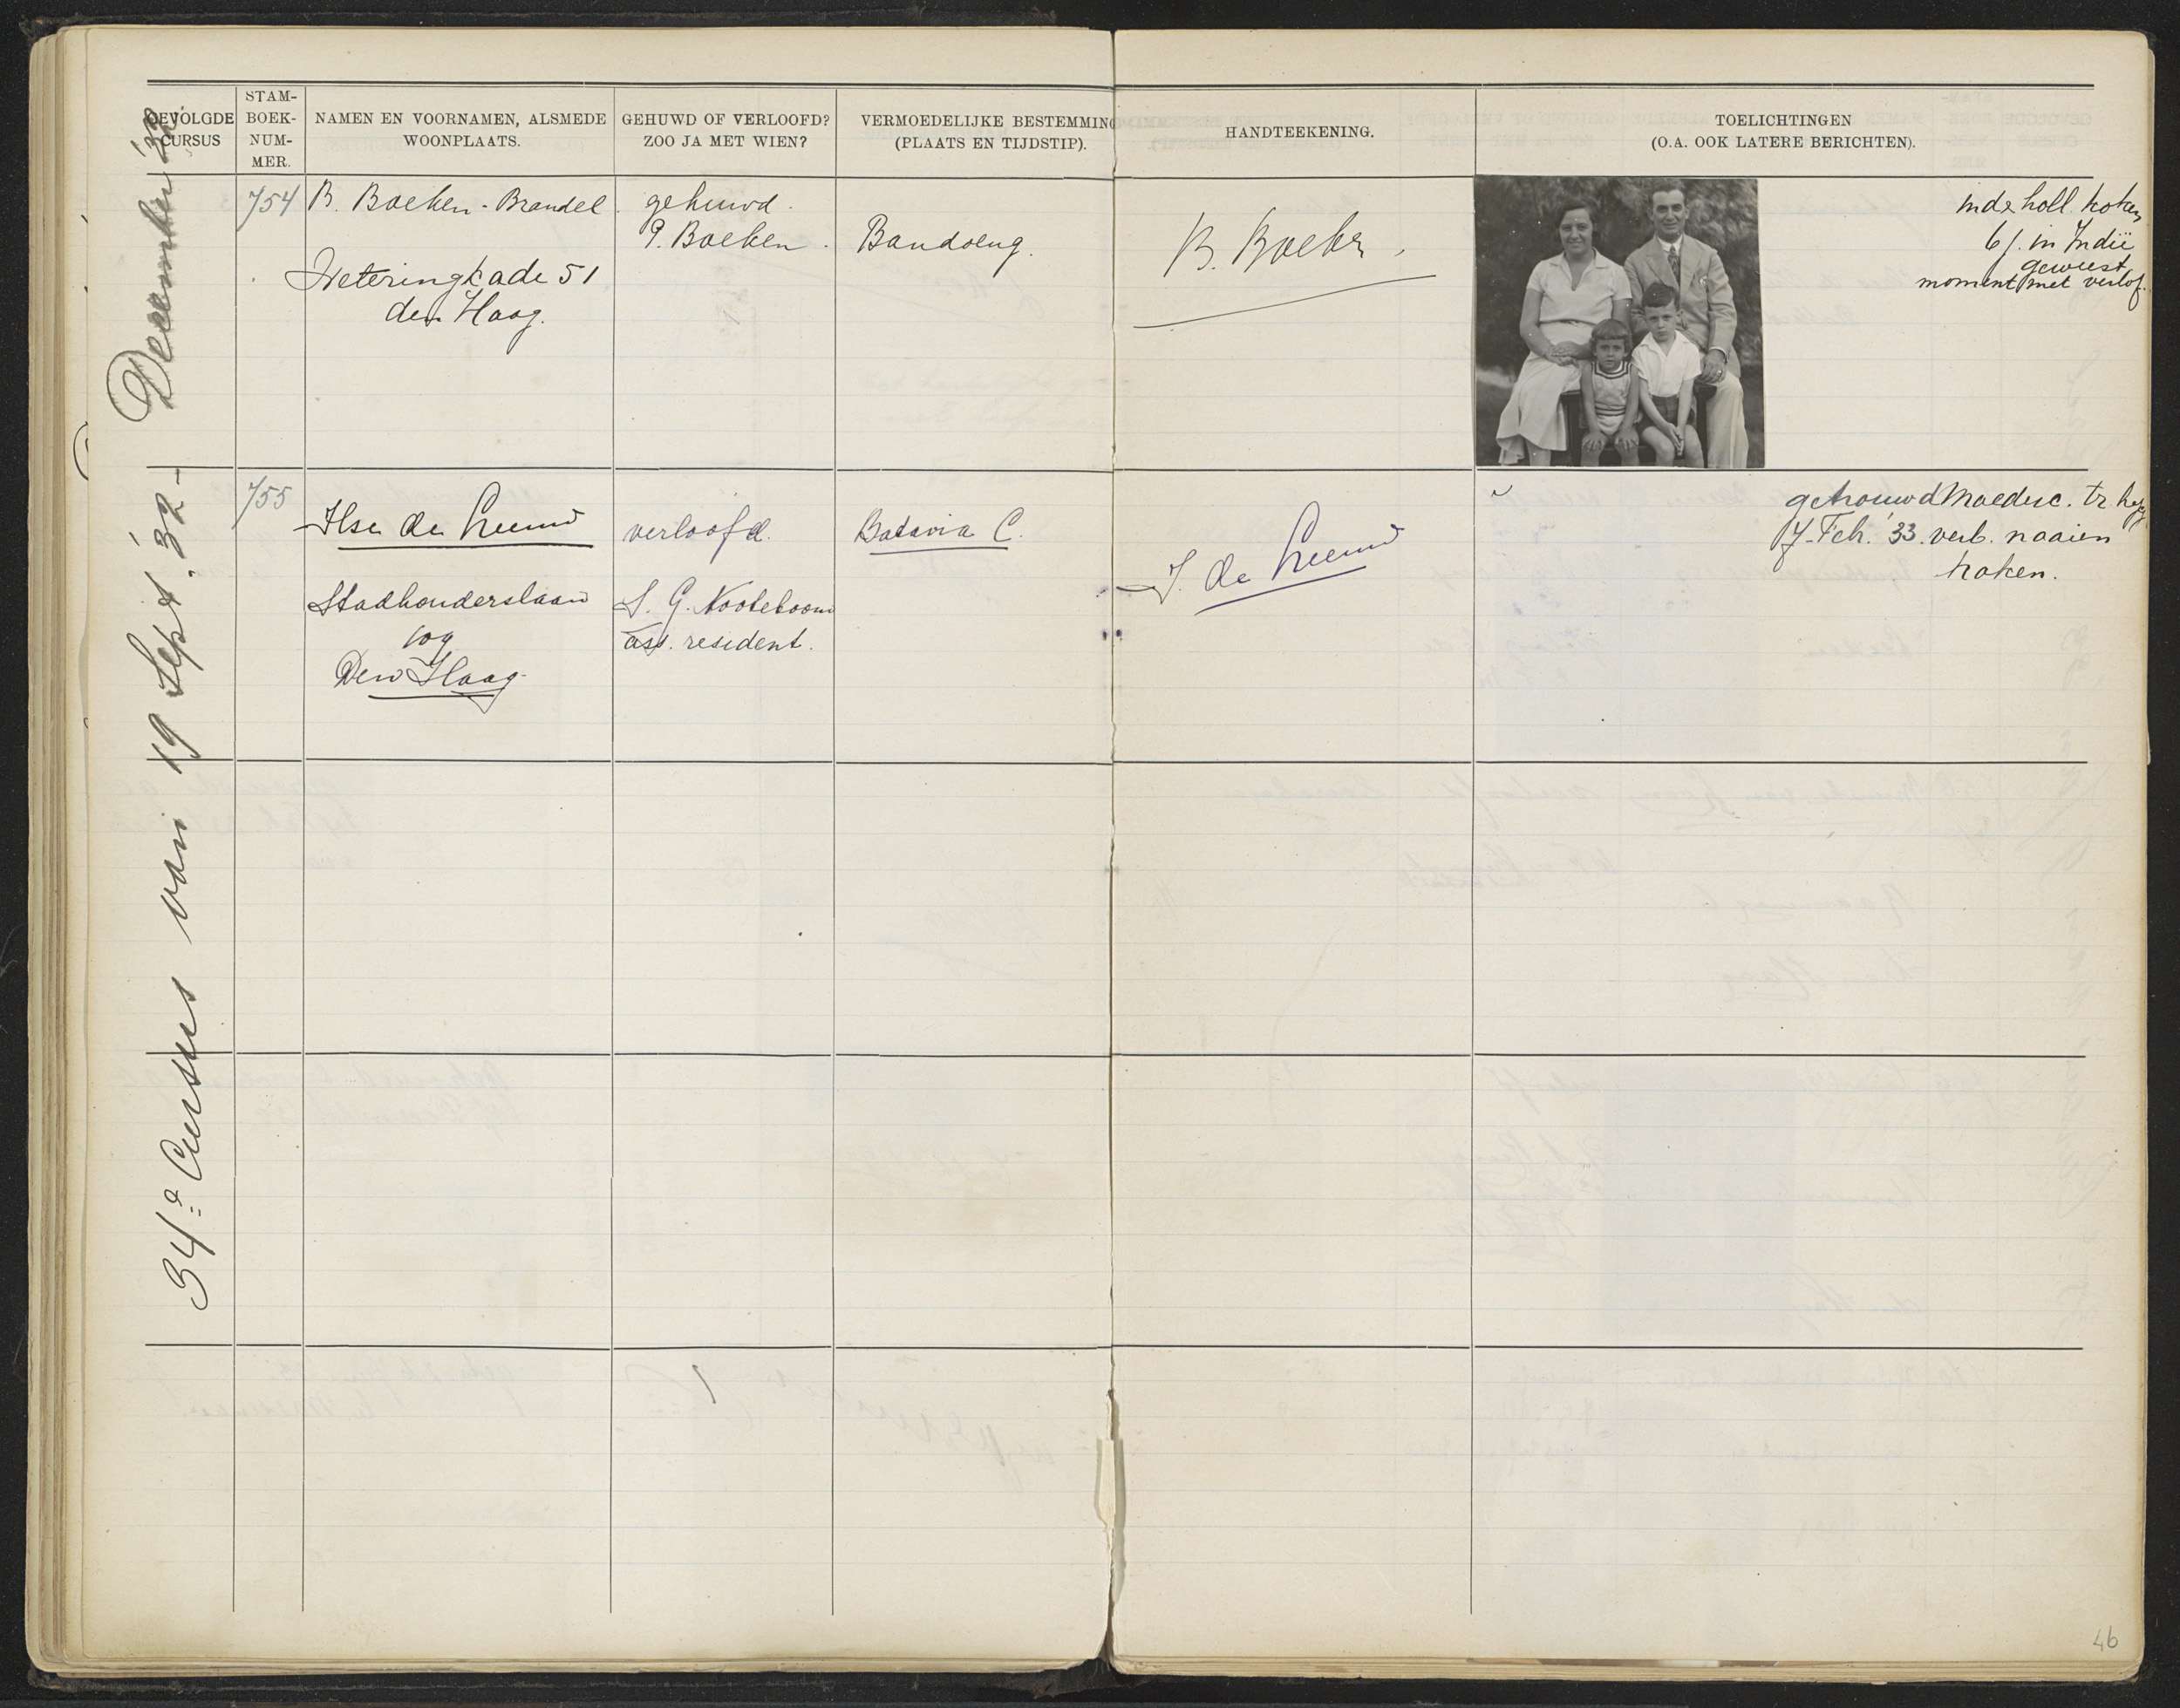 GEVOLGDE CURSUS
STAM-
BOEK-
NUM-
MER.
NAMEN EN VOORNAMEN, ALSMEDE
WOONPLAATS.
GEHUWD OF VERLOOFD?
ZOO JA MET WIEN?
VERMOEDELIJKE BESTEMMING
(PLAATS EN TIJDSTIP).
HANDTEEKENING.
TOELICHTINGEN
(O.A. OOK LATERE BERICHTEN).
34e Cursus van 19 Sept. '32 - December '32
754
B. Boeken-Brandel
Weteringkade 51
den Haag.
gehuwd.
P. Boeken.
Bandoeng.
B. Boeken.
ind & holl. koken
6 j. in Indië
geweest
moment met verlof.
755
Ilse de Leeuw
Stadhouderslaan
109
Den Haag.
verloofd.
S. G. Nooteboom
ass. resident.
Batavia C.
I. de Leeuw
getrouwd Moederc. tr. hyg
7 Feb. '33. verb. naaien
koken.
46